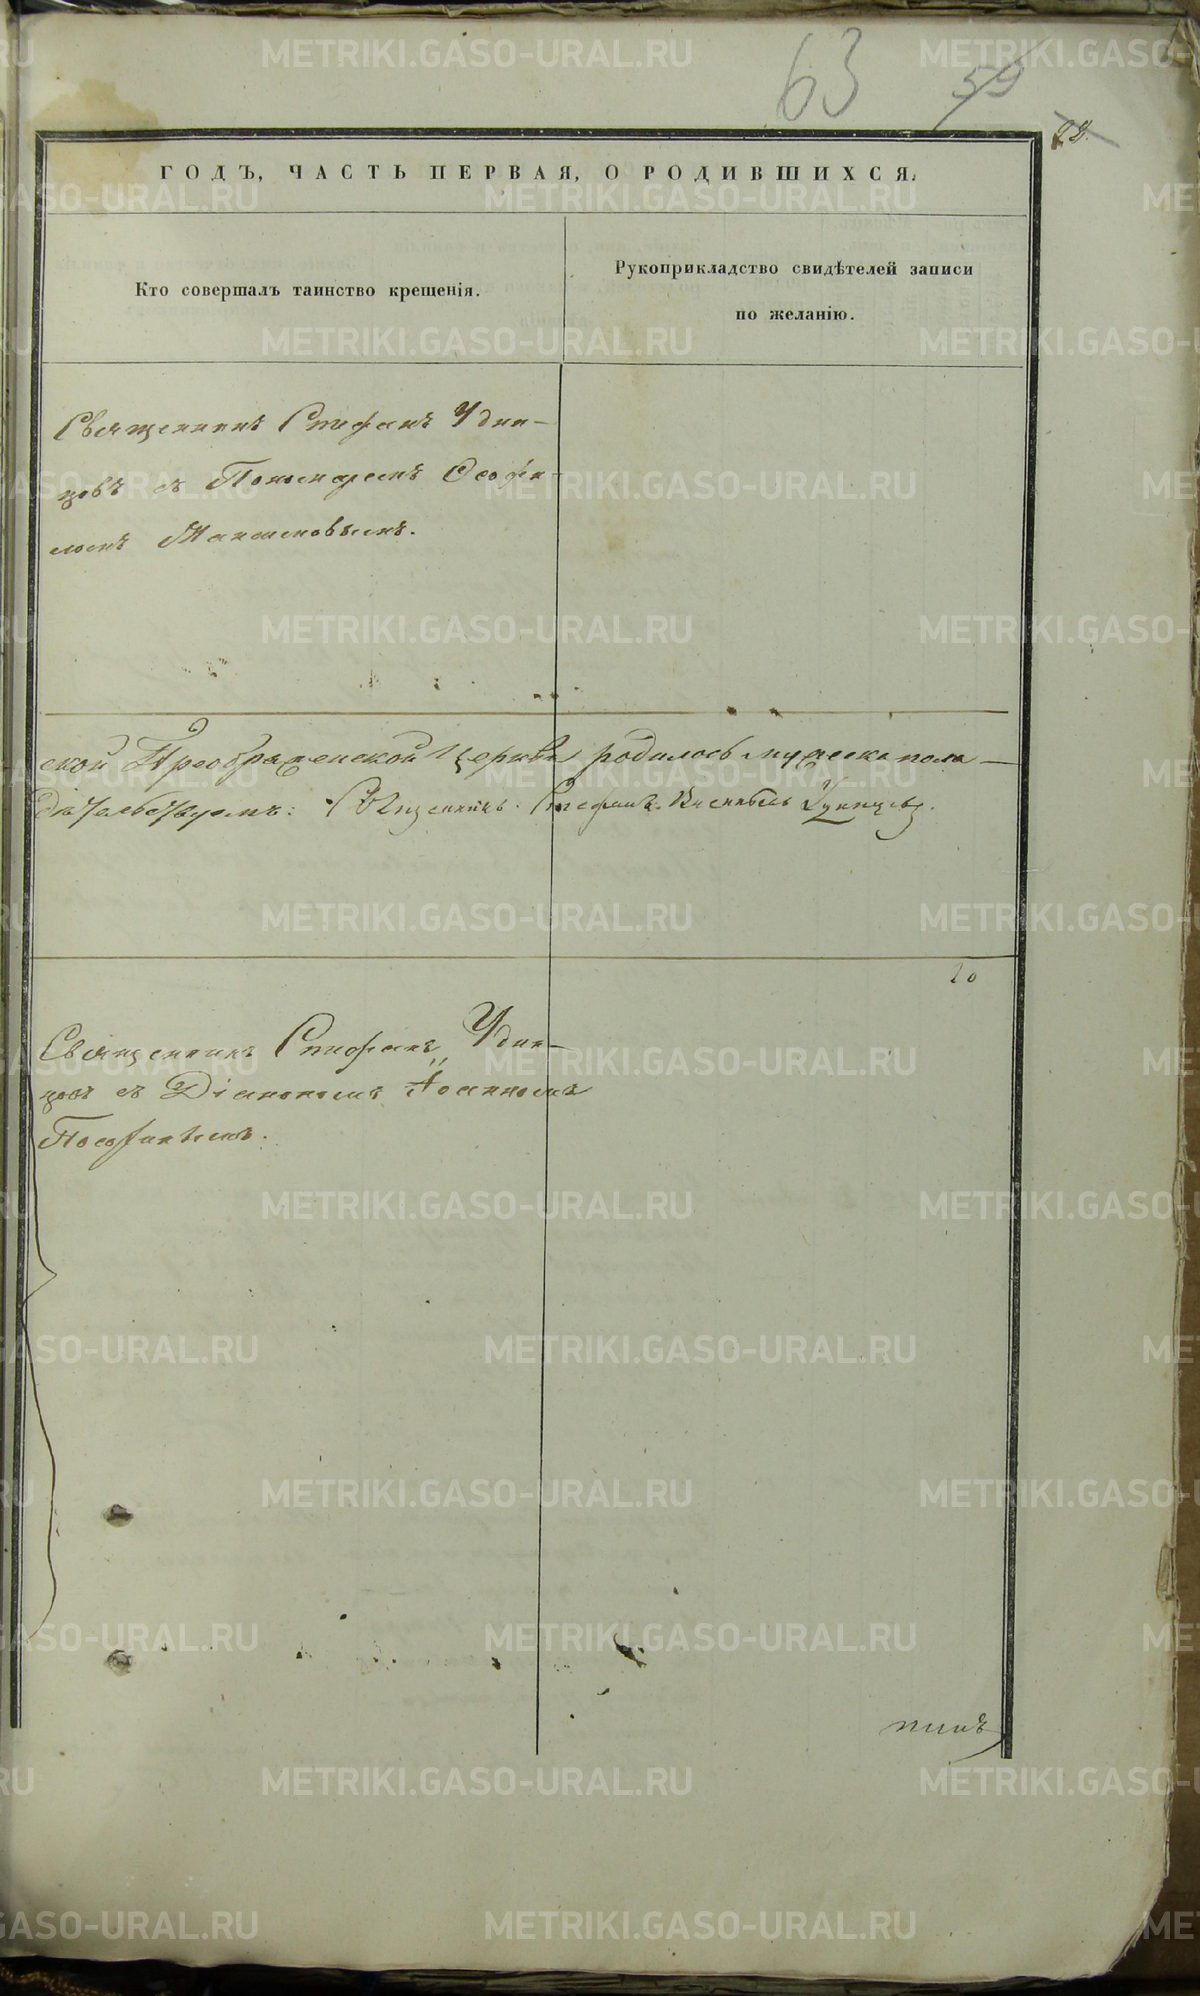 63 59
28.
ГОДЪ, ЧАСТЬ ПЕРВАЯ, О РОДИВШИХСЯ.
Кто совершалъ таинство крещенія.
Рукоприкладство свидѣтелей записи
по желанію.
Священникъ Стефанъ Удин-
цовъ съ Пономаремъ Феофи-
ломъ
ской Преображенской Церкви родилось мужеска пола
Священникъ Стефанъ
20
Священникъ Стефанъ Удин-
цовъ съ Діакономъ Іоанномъ
METRIKI.GASO-URAL.RU